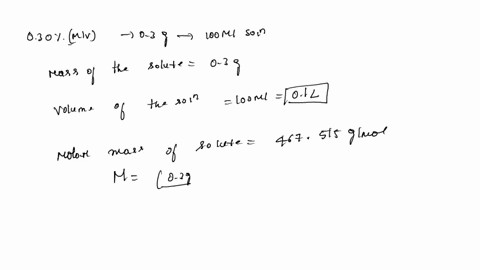 0.30%. (M/V) → 0.3 g → 100 Ml soln
Mass of the solute = 0.3 g
Volume of the soln = 100 Ml = 0.1 L
Molar mass of solute = 467.515 g/mol
M = (0.3g